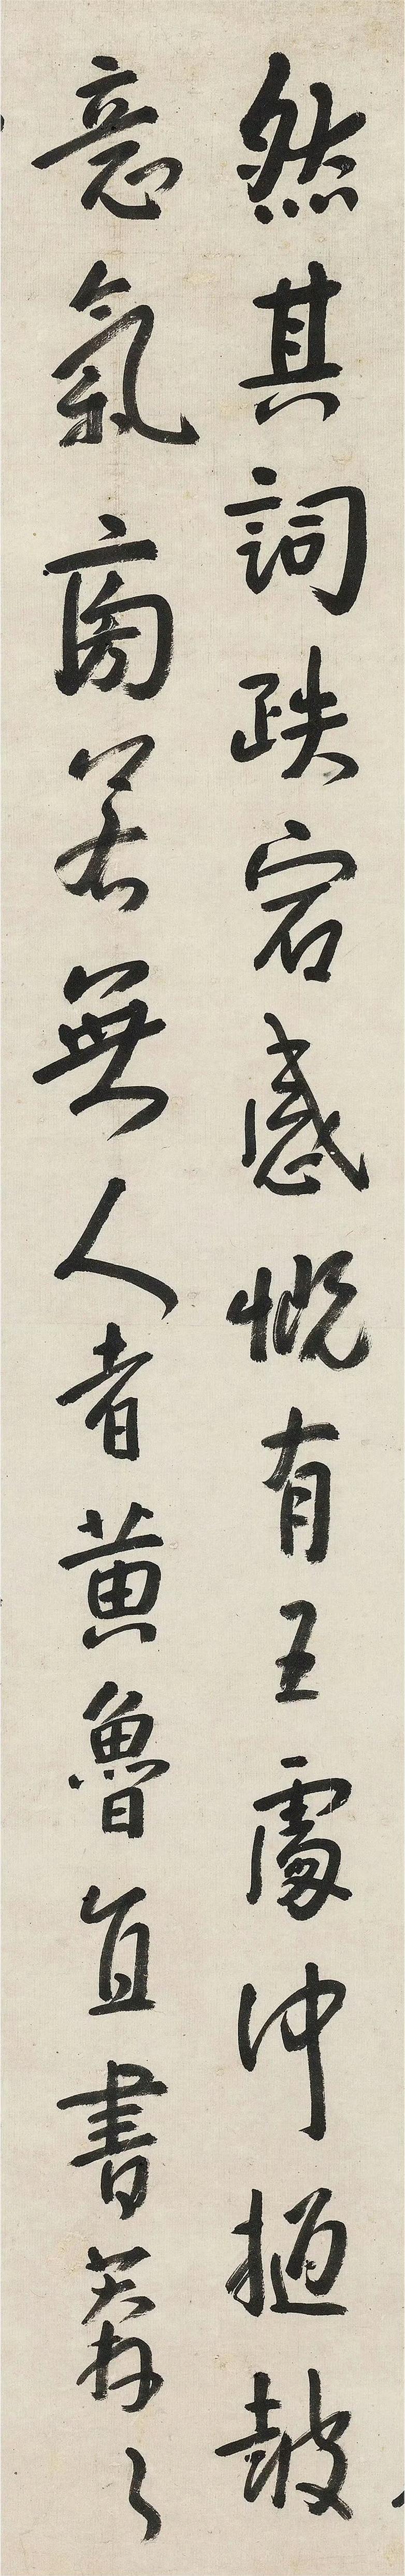 然其詞跌宕感慨有王處仲撾鼓
意氣旁若無人者黃魯直書